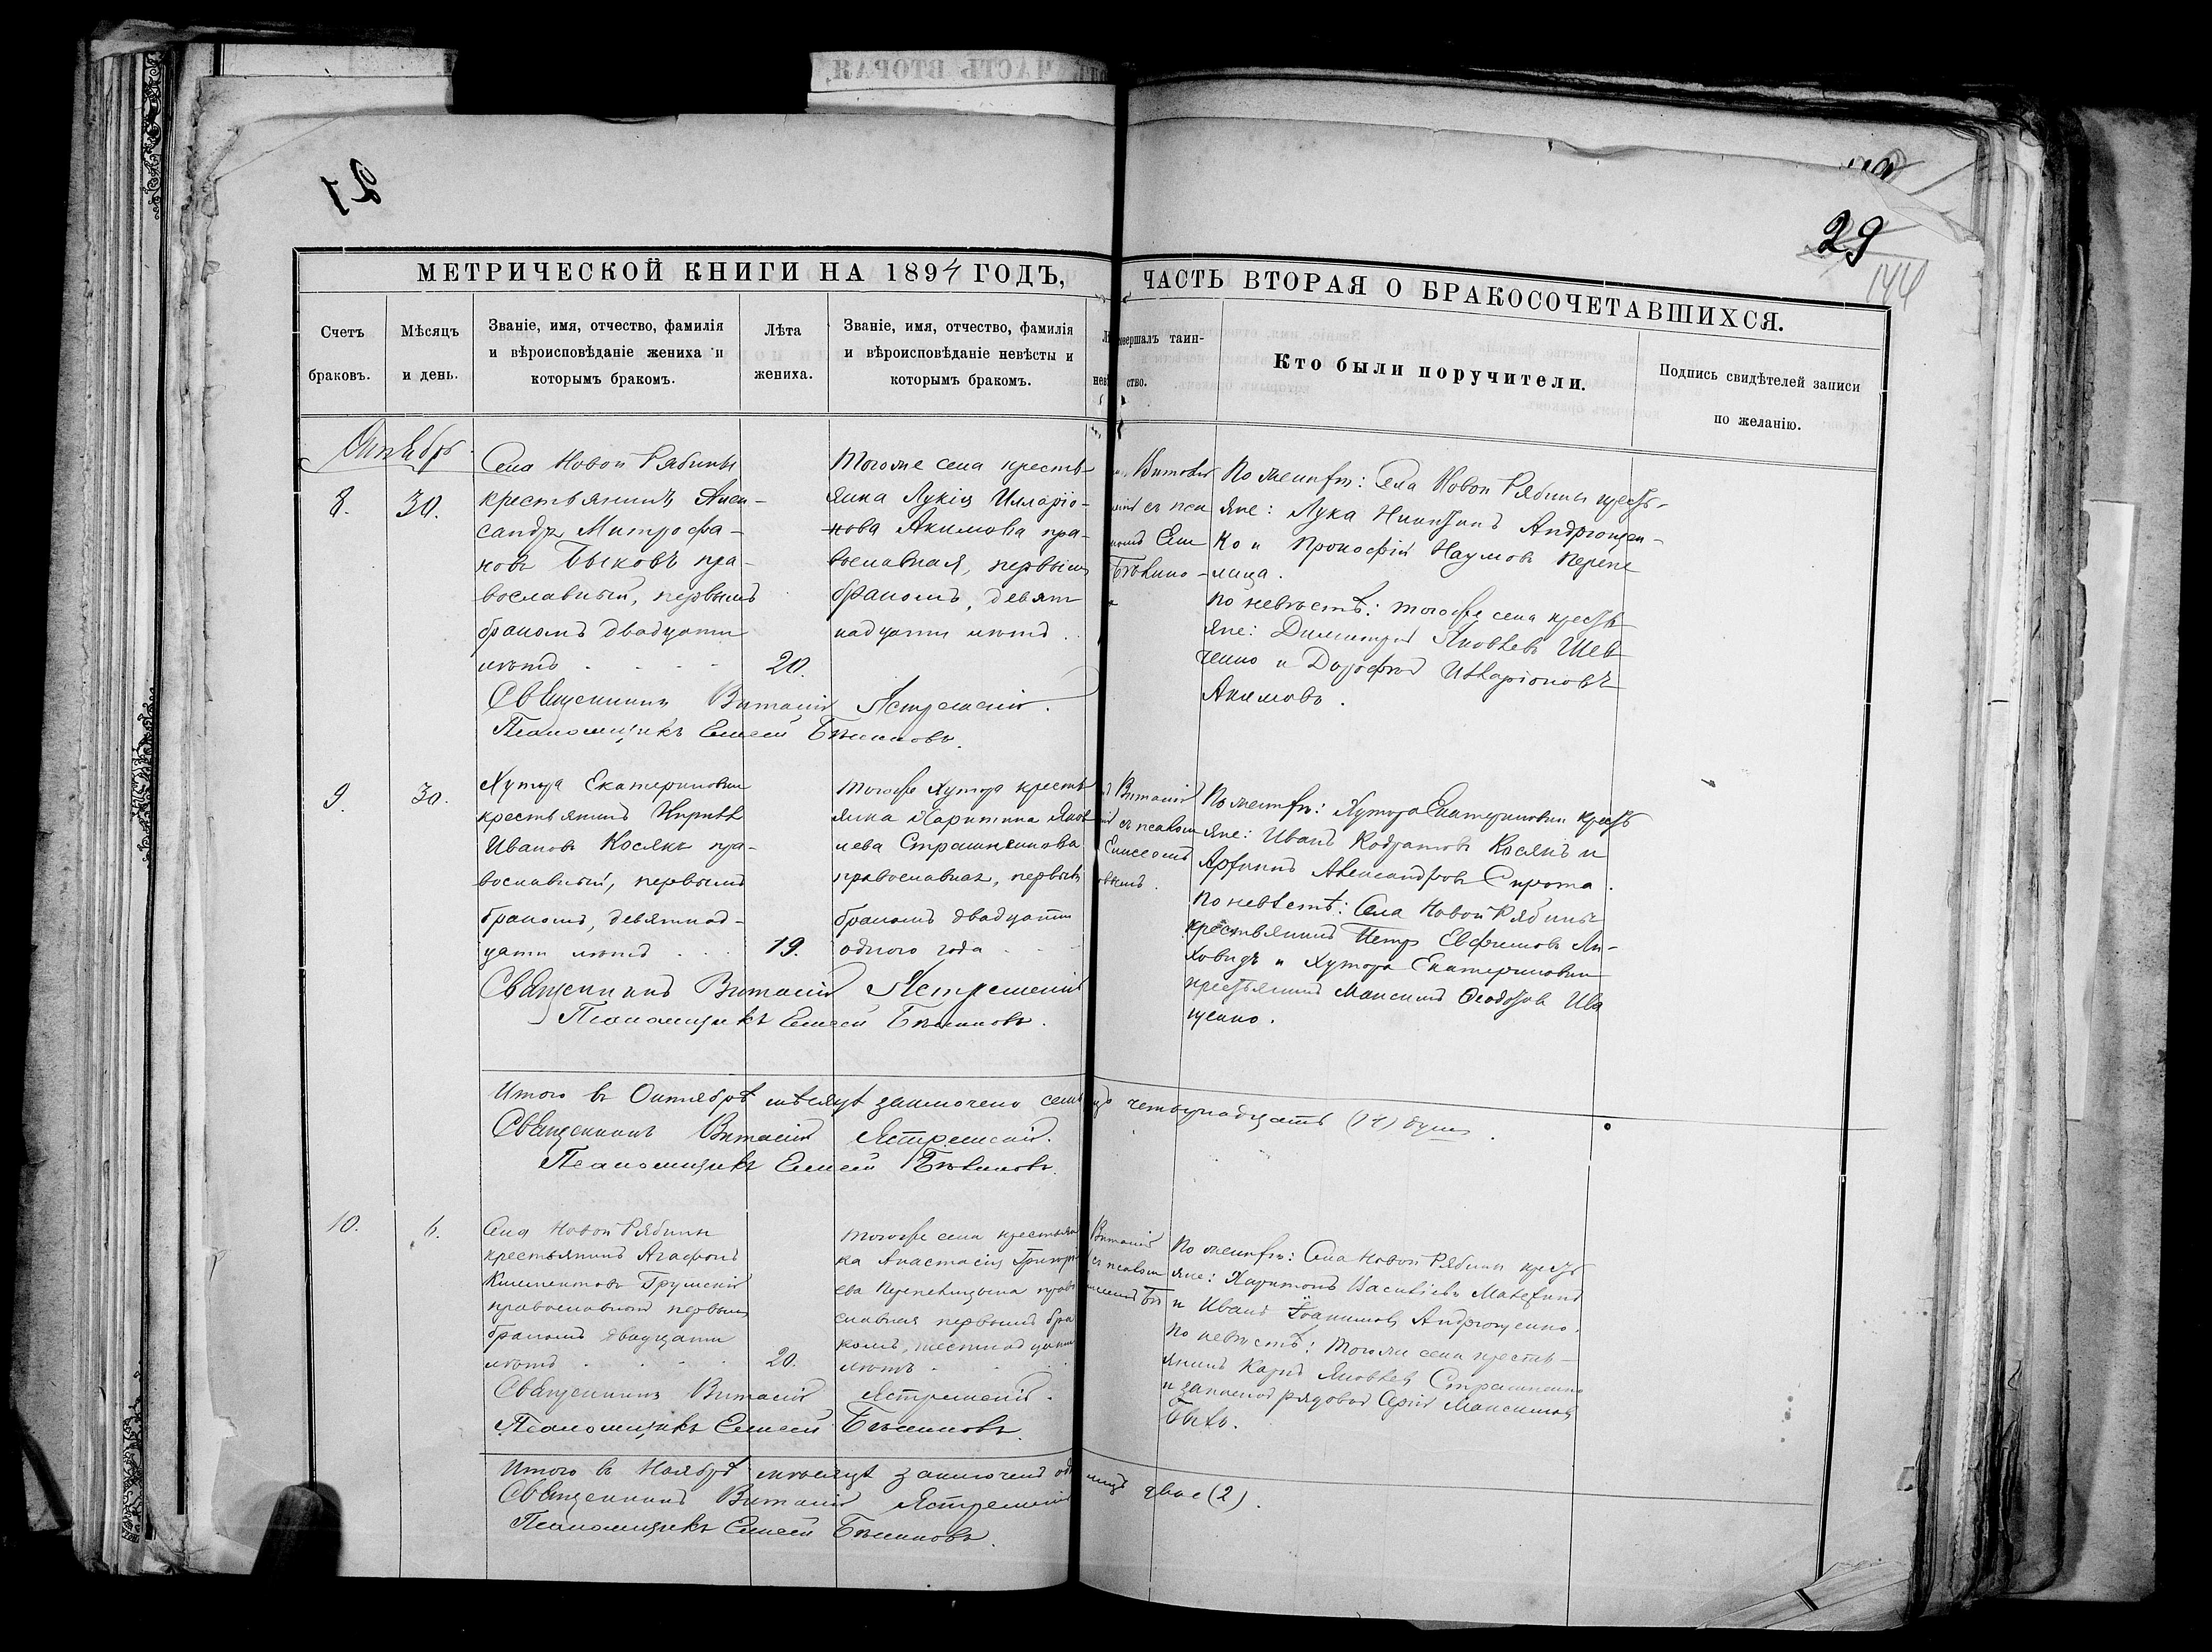 ЧАСТЬ ВТОРАЯ,
21
29
144
МЕТРИЧЕСКОЙ КНИГИ НА 1894 ГОДЪ,
ЧАСТЬ ВТОРАЯ О БРАКОСОЧЕТАВШИХСЯ.
Счетъ
браковъ.
Мѣсяцъ
и день.
Званіе, имя, отчество, фамилія
и вѣроисповѣданіе жениха и
которымъ бракомъ.
Лѣта
жениха.
Званіе, имя, отчество, фамилія
и вѣроисповѣданіе невѣсты и
которымъ бракомъ.
вершалъ таин-
ство.
Кто были поручители.
Подпись свидѣтелей записи
по желанію.
Октябрь
8.
30.
Села Новой Рябины
крестьянинъ Алек-
сандръ Митрофа-
новъ Быковъ пра-
вославный, первымъ
бракомъ двадцати
лѣтъ
20.
Тогоже села кресть-
янка Лукія Илларіо-
нова Акимова пра-
вославная, первымъ
бракомъ, девят-
надцати лѣтъ
По женихѣ: Села Новой Рябины кресть-
яне: Лука Никитинъ Андрющен-
ко и Прокофій Наумовъ Перепе
лица.
По невѣстѣ: тогоже села кресть
яне: Димитрій Яковлевъ Шев
ченко и Дорофей Иларіоновъ
Акимовъ.
Священникъ Виталій Ястремскій.
Псаломщикъ Елисей Бѣликовъ.
9.
30.
Хутора Екатериновки
крестьянинъ Кириллъ
Ивановъ Косякъ пра-
вославный, первымъ
бракомъ, девятнад-
цати лѣтъ
19.
Тогоже хутора кресть
янка Харитина Яков
лева Страшненкова
православная, первымъ
бракомъ двадцати
одного года
Виталій
съ псалом
Елисеемъ
По женихѣ: Хутора Екатериновки кресть
яне: Иванъ Кодратовъ Косякъ и
Александровъ Сирота.
По невѣстѣ: Села Новой Рябины
крестьянинъ Петръ Евфимовъ Ли-
ховидъ и Хутора Екатериновки
крестьянинъ Максимъ Ива
щенко.
Священникъ Виталій Ястремскій
Псаломщикъ Елисей Бѣликовъ.
Итого въ Октябрѣ мѣсяцѣ заключено семь
четырнадцать (14) душъ.
Священникъ Виталій Ястремскій.
Псаломщикъ Елисей Бѣликовъ.
10.
6.
Села Новой Рябины
крестьянинъ Агафонъ
Климентовъ Грумскій
православной первымъ
бракомъ двадцати
лѣтъ
20.
Тогоже села крестьян
ка Анастасія Григорь
ева Перепелицына право
славная первымъ бра
комъ, шестнадцати
лѣтъ
Виталій
съ псалом
По женихѣ: Села Новой Рябины кресть
яне: Харитонъ Васильевъ
и Иванъ Іоакимовъ Андрющенко.
По невѣстѣ: Тогоже села кресть-
янинъ Карпъ Яковлевъ Страшненко
и запасной рядовой Сергій Максимовъ
Быкъ.
Священникъ Виталій Ястремскій.
Псаломщикъ Елисей Бѣликовъ.
Итого въ Ноябрѣ мѣсяцѣ заключенъ
лицъ двое (2).
Священникъ Виталій Ястремскій
Псаломщикъ Елисей Бѣликовъ.